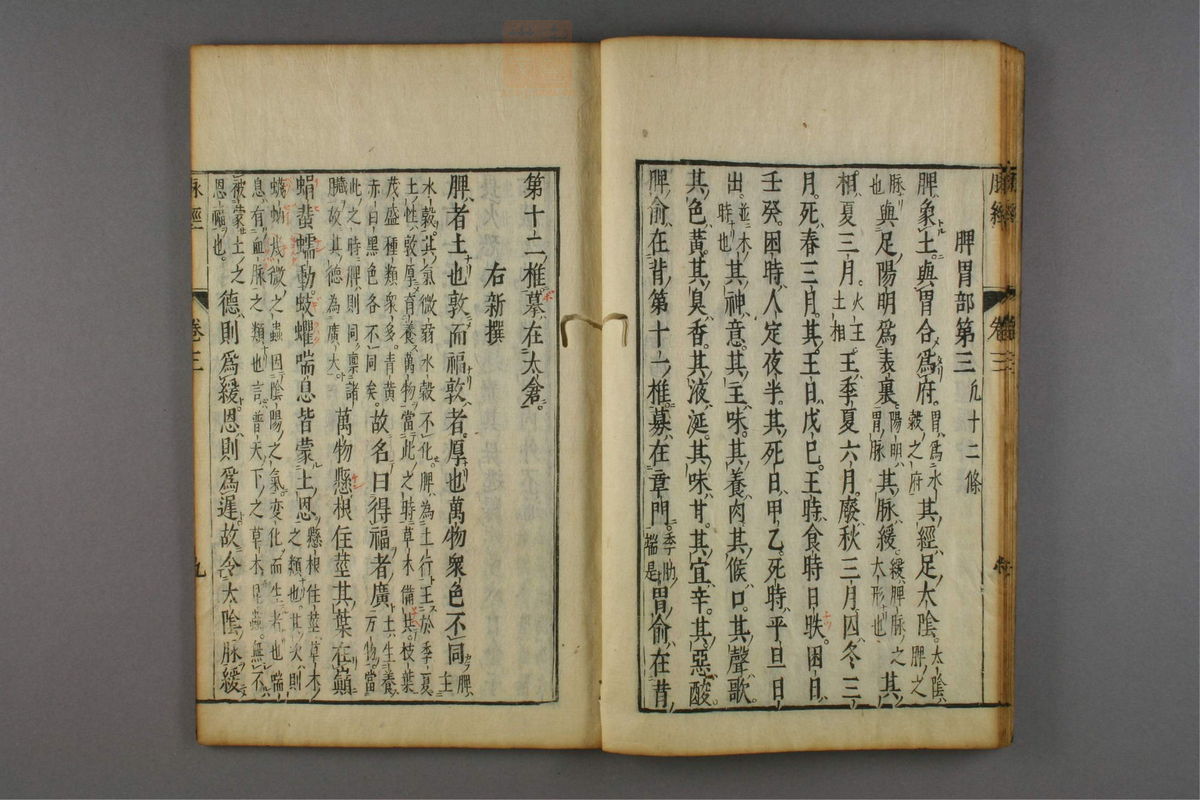 脾胃部第三 凡十二條
脾象土與胃合爲府。胃爲水穀之府其經足太陰。太陰脾之
脉也與足陽明爲表裏陽明胃脉其脉緩。緩脾脉之大形也其
相夏三月。火王土相王季夏六月。廢秋三月囚冬三
月。死春三月。其王日戊巳。王時食時日昳。困日
壬癸。困時人定夜半。其死日甲乙。死時平旦日
出。並木時也其神意。其主味。其養肉。其候口。其聲歌。
其色黃。其臭香。其液涎。其味甘。其宜辛。其惡酸。
脾俞在背第十一椎。募在章門。季肋端是胃俞在背
第十二椎募在太倉。
右新撰
脾者土也敦而福敦者。厚也萬物衆色不同脾主
水穀。其氣微弱水穀不化。脾為土行王於季夏
土性敦厚育養萬物當此之時草木備具。枝葉
茂盛種類衆多。青黃
赤白黑色各不同矣。故名曰得福者廣土生養万物。當
此之時脾則同禀諸
臓故其德為廣大。萬物懸根住莖其葉在巔
蜎蜚蠕動。蚑蠷喘息皆蒙土恩。懸根住莖。草木
之類也。其次則
蠛蚋幾微之蟲因陰陽之氣。変化而生者也喘
息有血脉之類也言普天下之草木昆蟲。無不
被蒙土之
恩福也。德則爲緩恩則爲遲故令太陰脉緩
脉經
卷三
九